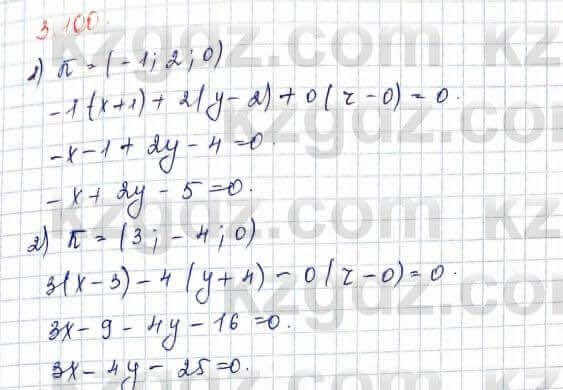 3.100.
1) n = (-1; 2; 0)
-1(x+1) + 2(y-2) + 0(z-0) = 0.
-x-1+2y-4=0.
-x+2y-5=0.
2) n = (3; -4; 0)
3(x-3)-4(y+4)-0(z-0)=0.
3x-9-4y-16=0.
3x-4y-25=0.
kzgdz.com